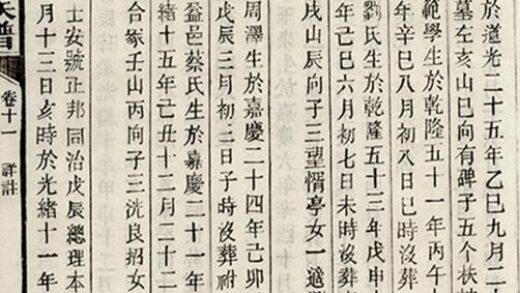 於道光二十五年乙巳九月二十
墓左亥山巳向有碑子五个
範學生於乾隆五十一年丙午十
年辛巳八月初八日巳時沒葬
劉氏生於乾隆五十三年戊申
年己巳六月初七日未時沒葬
戌山辰向子三望惰亭女一適
周澤生於嘉慶二十四年己卯
戊辰三月初三日子時沒葬祔
益邑蔡氏生於嘉慶二十一年
緒十五年己丑十二月二十二
合冢壬山丙向子三洗良招女
士安號正邦同治戊辰總理本
月十三日亥時於光緒十一年
氏譜
卷十一
詳註